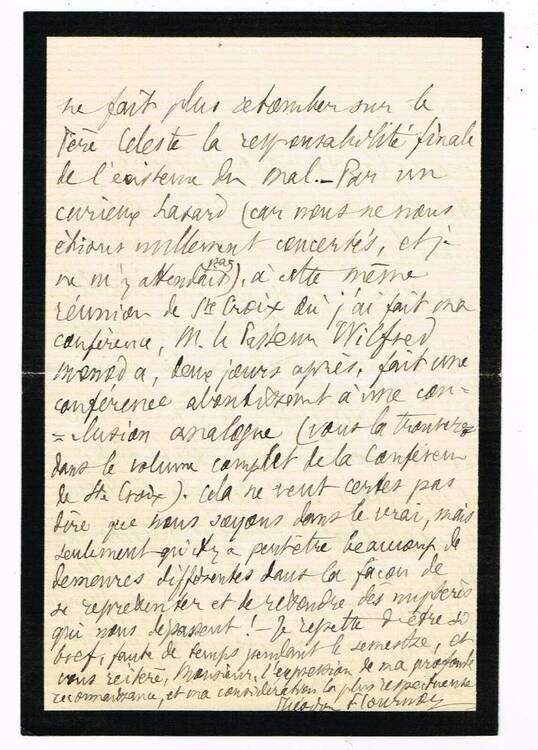 ne fait plus retomber sur le
Père Céleste la responsabilité finale
de l'existence du mal. – Par un
curieux hasard (car nous ne nous
étions nullement concertés, et je
ne m'y attendais pas), à cette même
réunion de Ste Croix où j'ai fait ma
conférence, M. le Pasteur Wilfred
Monod a, deux jours après, fait une
conférence aboutissant à une con-
-clusion analogue (vous la trouverez
dans le volume complet de la Conférence
de Ste Croix). Cela ne veut certes pas
dire que nous soyons dans le vrai, mais
seulement qu'il y a peut-être beaucoup de
demeures différentes dans la façon de
se représenter et de résoudre des mystères
qui nous dépassent! – Je regrette d'être si
bref, faute de temps pendant le semestre, et
vous réitère, Monsieur, l'expression de ma profonde
reconnaissance, et ma considération la plus respectueuse
Théodore Flournoy